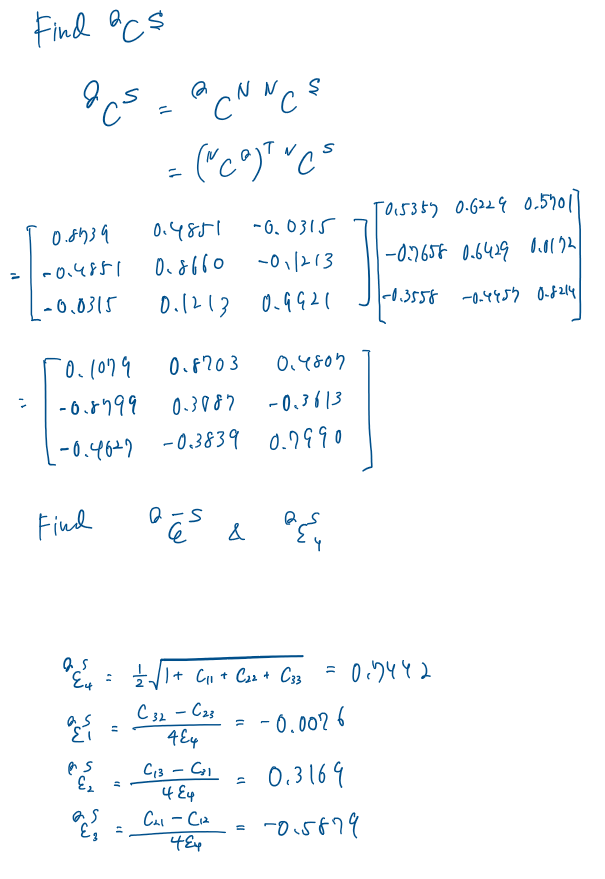 Find ᵃCˢ
ᵃCˢ = ᵃCᴺ ᴺCˢ
= (ᴺCᵃ)ᵀ ᴺCˢ
= [0.8739 0.4851 -0.0315] [0.5357 0.6229 0.5701]
[-0.4851 0.8660 -0.1213] [-0.7658 0.6429 0.0172]
[-0.0315 0.1213 0.9921] [-0.3558 -0.4457 0.8214]
= [0.1079 0.8703 0.4807]
[-0.8799 0.3087 -0.3613]
[-0.4627 -0.3839 0.7990]
Find ᵃε̄ˢ & ᵃε₄ˢ
ᵃε₄ˢ = ½√(1 + C₁₁ + C₂₂ + C₃₃) = 0.7442
ᵃε₁ˢ = (C₃₂ - C₂₃)/(4ε₄) = -0.0076
ᵃε₂ˢ = (C₁₃ - C₃₁)/(4ε₄) = 0.3169
ᵃε₃ˢ = (C₂₁ - C₁₂)/(4ε₄) = -0.5879